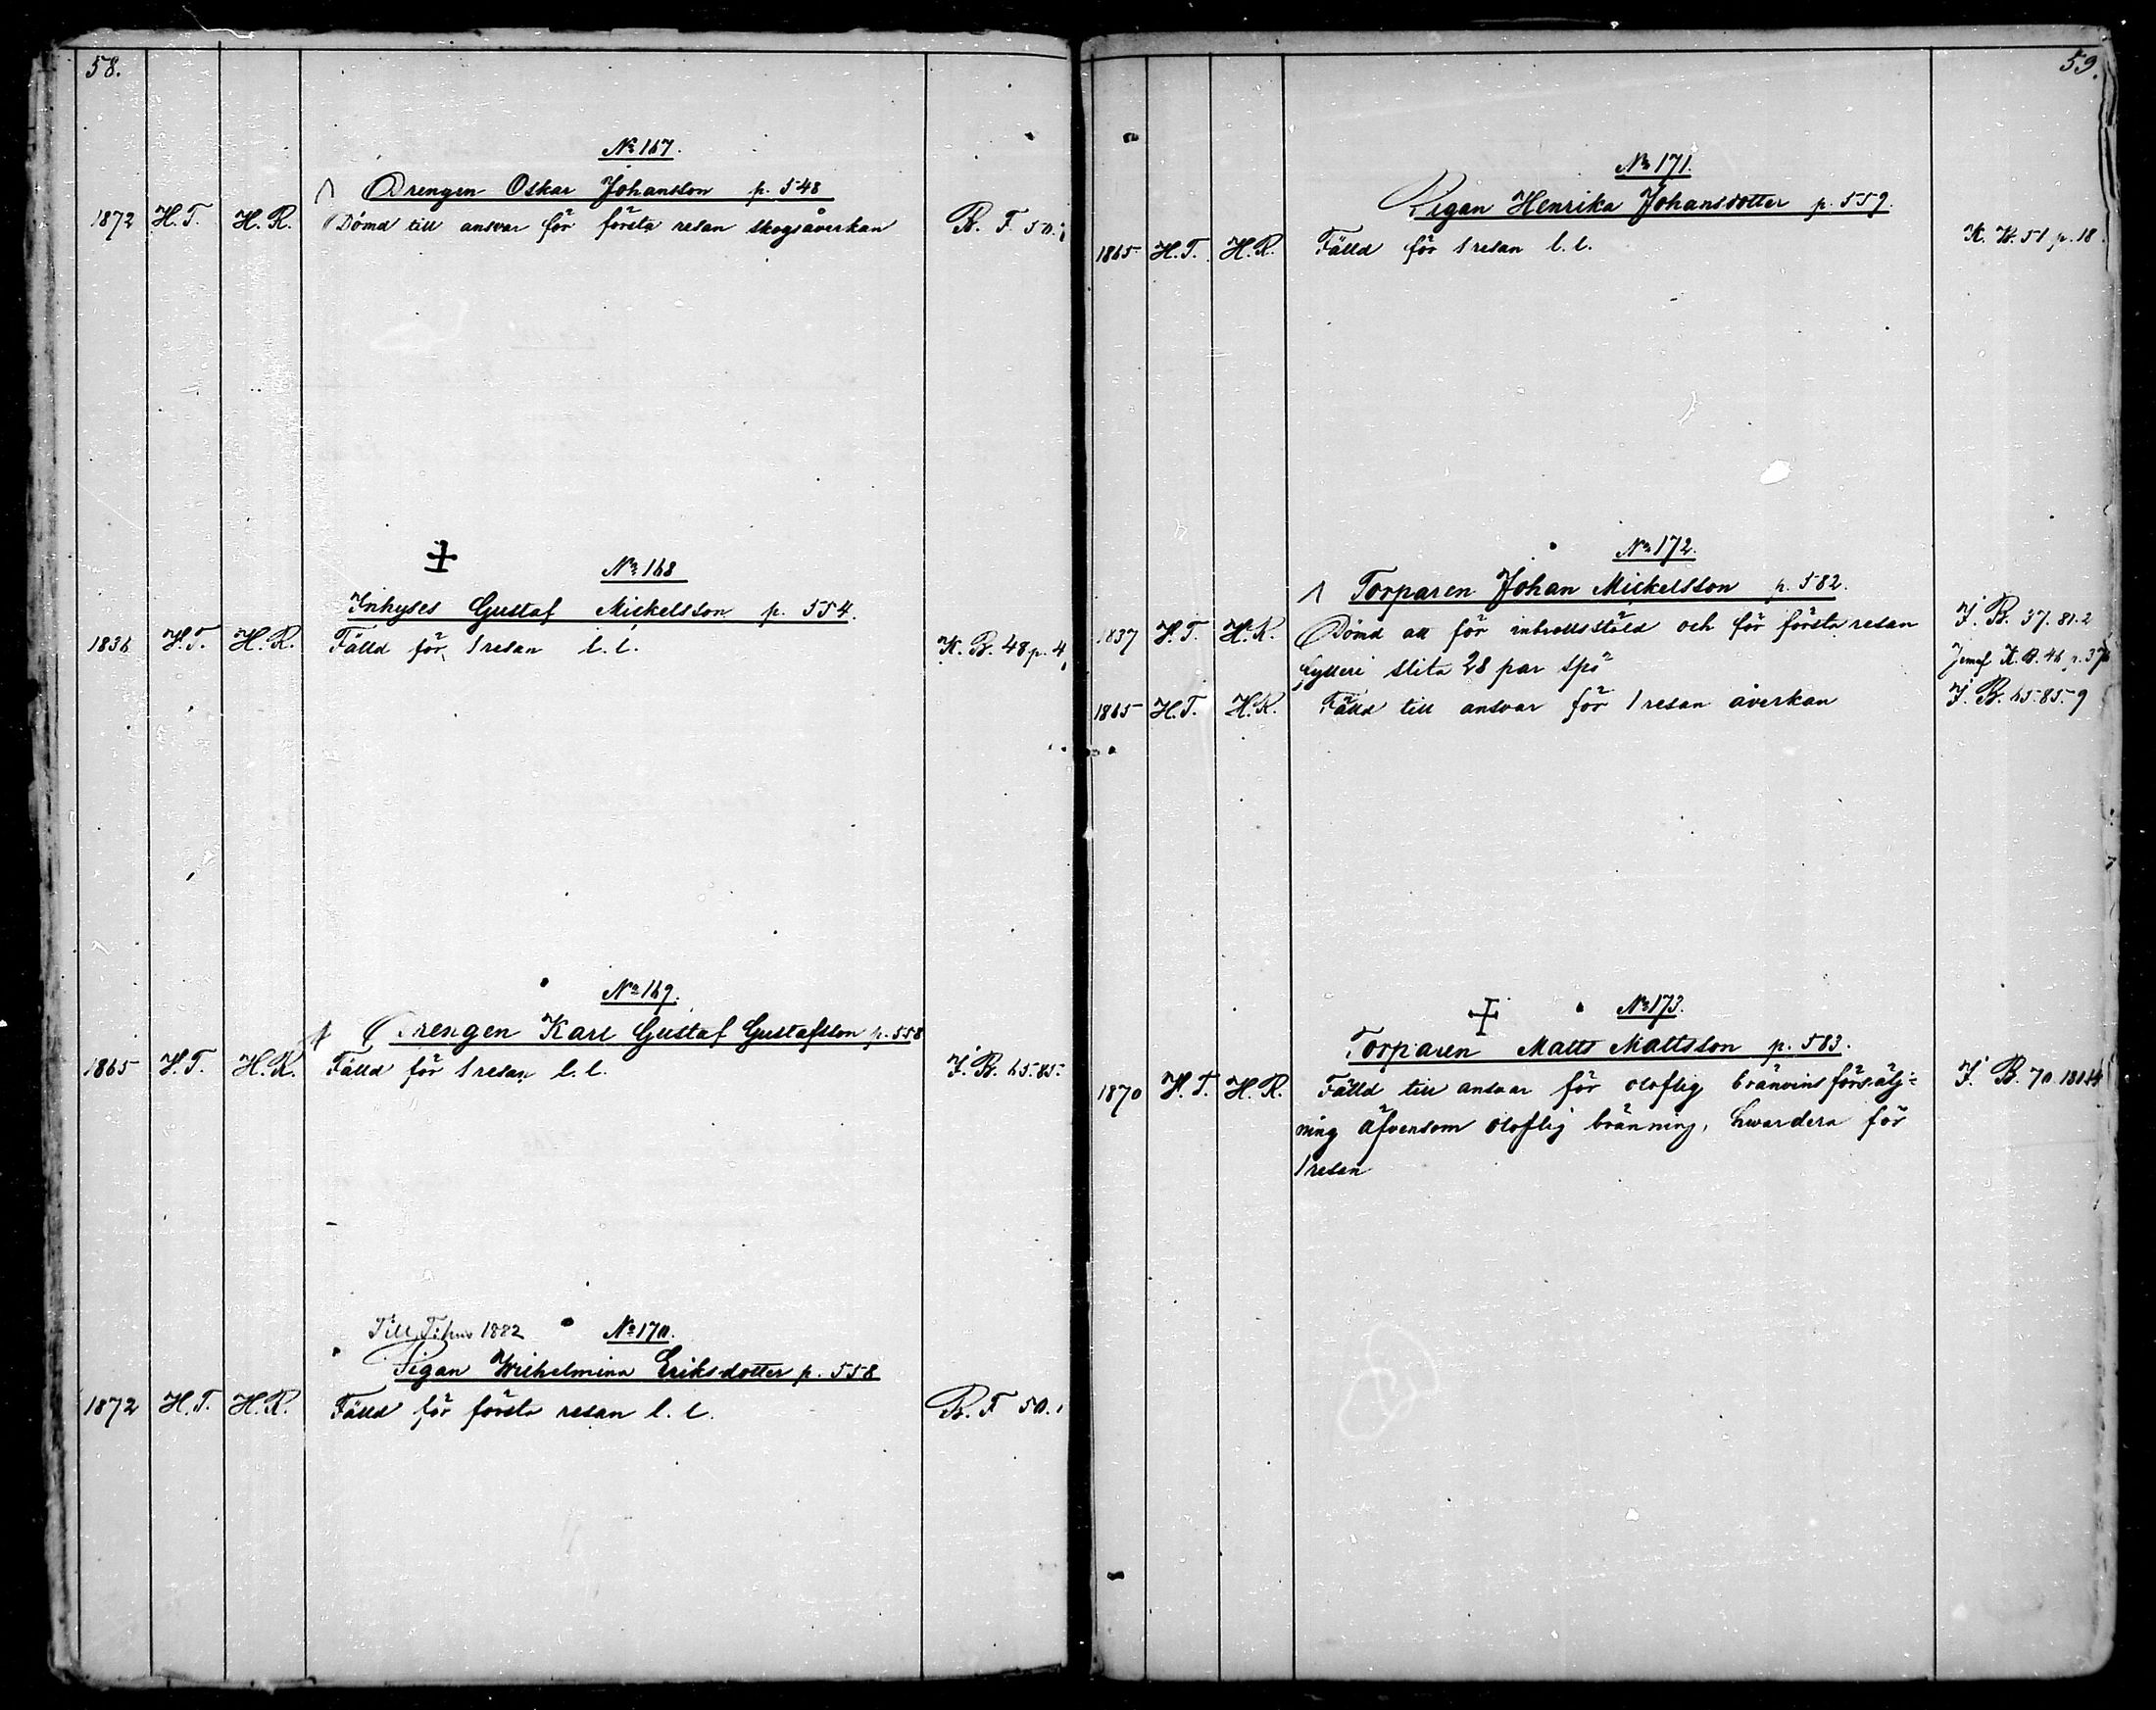 58.
No 167.
Drengen Oskar Johansson p. 548
1872 H. T. H. R. Dömd till ansvar för första resan skogsåverkan B. F. 50.
No 168
Inhyses Gustaf Mickelsson p. 554.
1836 H. T. H. R. Fälld för 1 resan l. l. K. B. 48 p. 4
No 169.
Drengen Karl Gustaf Gustafsson p. 558
1865 H. T. H. R. Fälld för 1 resan l. l. J. B. 65. 85.
Till 1882 No 170.
Pigan Wilhelmina Eriksdotter p. 558
1872 H. T. H. R. Fälld för första resan l. l. B. F 50.
59.
No 171.
Pigan Henrika Johansdotter p. 559.
1865 H. T. H. R. Fälld för 1 resan l. l. K. B. 51 p. 18.
No 172.
Torparen Johan Mickelsson p. 582.
1837 H. T. H. R. Dömd att för inbrottsstöld och för första resan J. B. 37. 81. 2
hyleri slita 28 par spö Jemf K. B. 46 p. 376
1865 H. T. H. R. Fälld till ansvar för 1 resan åverkan J. B. 65. 85. 9
No 173.
Torparen Matts Mattsson p. 583.
1870 H. T. H. R. Fälld till ansvar för oloflig bränvins försälj= J. B. 70.
ning äfvensom oloflig bränning, hwardera för
1 resan